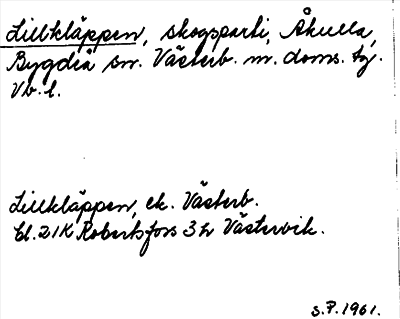 Lillkläppen, skogsparti, Åkulla,
Bygdeå sn. Västerb. m. doms. tg.
Vb. l.
Lillkläppen, ek. Västerb.
bl. 21K Robertsfors 3h Västervik.
S.P. 1961.